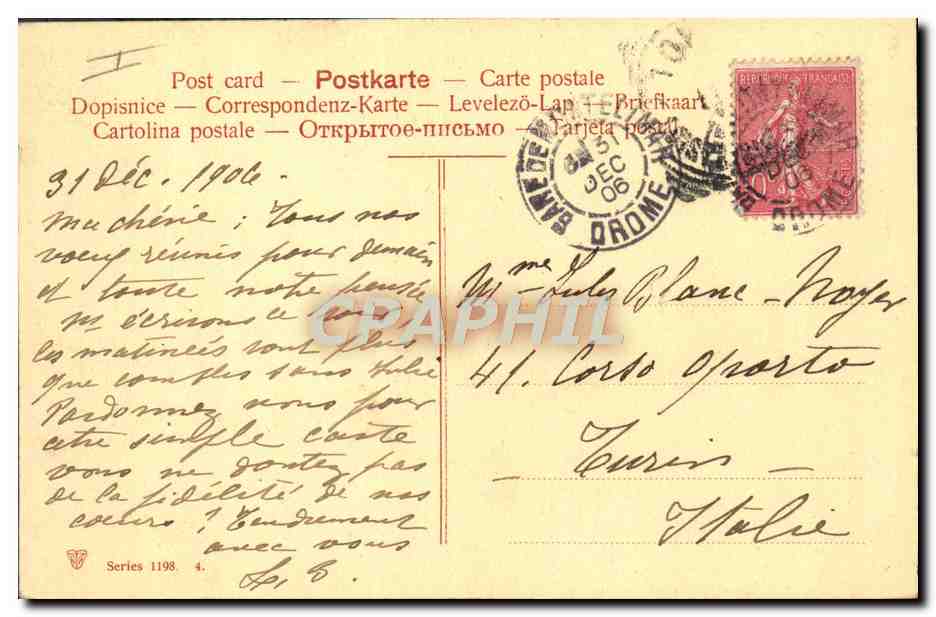 I
Post card — Postkarte — Carte postale
Dopisnice — Correspondenz-Karte — Levelező-Lap — Briefkaart
Cartolina postale — Открытое-письмо — Tarjeta postal
REPUBLIQUE FRANÇAISE
GARE DE MONTELIMAR
31
DEC
06
DROME
31 Déc. 1906.
Ma chérie ; Tous nos
voeux réunis pour demain
et toute notre pensée
ns écrirons ce
les matinées sont plus
que comples sans Julie
Pardonnez nous pour
cette simple carte
vous ne doutez pas
de la fidélité de nos
coeurs ! Tendrement
avec vous
Mme Jules Blanc-Noyer
41. Corso Oporto
Turin
Italie
CPAPHIL
Series 1198. 4.